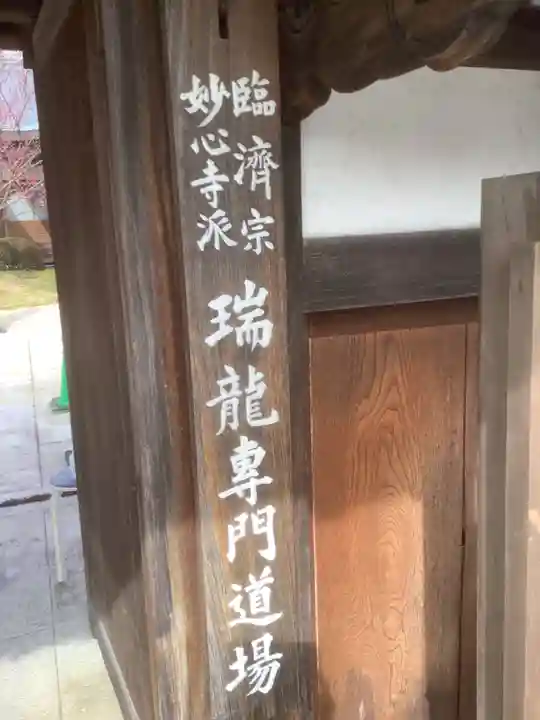 臨濟宗
妙心寺派
瑞龍專門道場